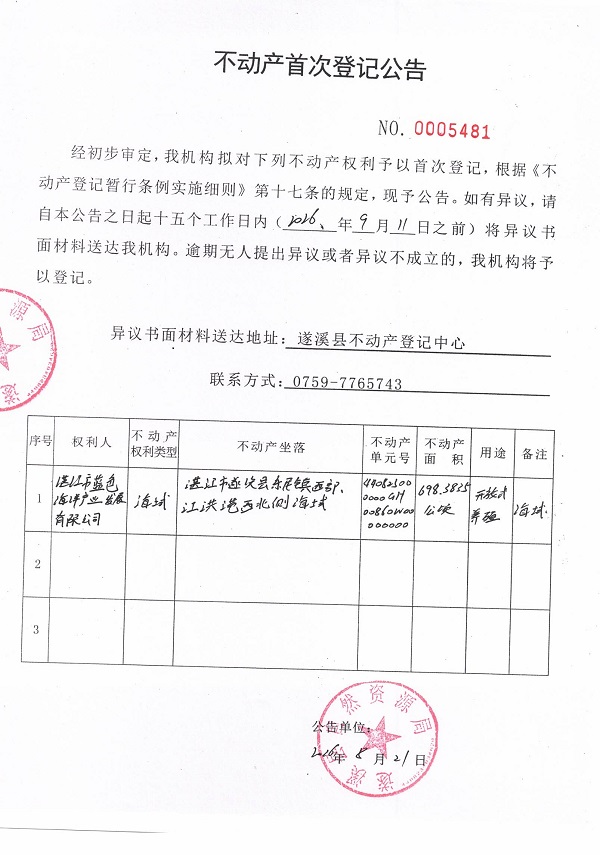 不动产首次登记公告
NO. 0005481
经初步审定，我机构拟对下列不动产权利予以首次登记，根据《不
动产登记暂行条例实施细则》第十七条的规定，现予公告。如有异议，请
自本公告之日起十五个工作日内（2026、年9月11日之前）将异议书
面材料送达我机构。逾期无人提出异议或者异议不成立的，我机构将予
以登记。
异议书面材料送达地址：遂溪县不动产登记中心
联系方式：0759-7765743
序号 权利人 不动产权利类型 不动产坐落 不动产单元号 不动产面积 用途 备注
1 湛江市蓝色海洋产业发展有限公司 海域 湛江市遂溪县乐民镇西部、江洪港西北侧海域 440823000000GH00860W00000000 698.3825公顷 开放式养殖 海域
2
3
公告单位：
2026年8月21日
然资源局
遂溪
源局
遂